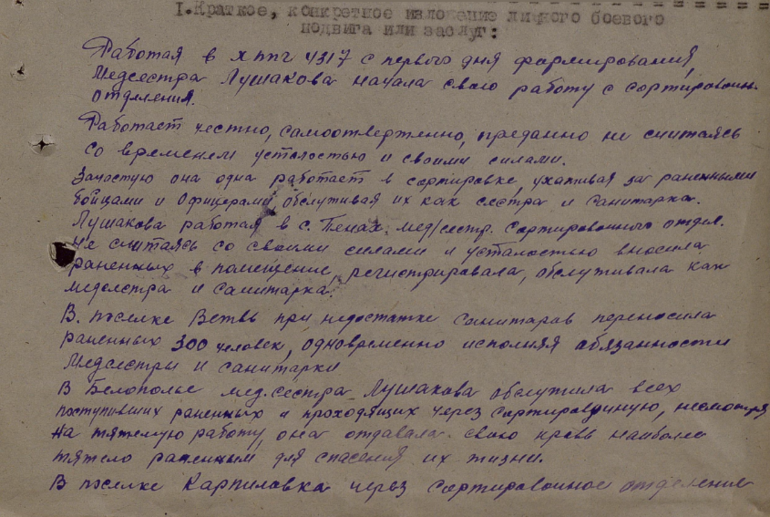 I. Краткое, конкретное изложение личного боевого
подвига или заслуг:
Работая в хппг 4317 с первого дня формирования,
Медсестра Лушакова начала свою работу с сортировочн.
отделения.
Работает честно, самоотверженно, преданно не считаясь
со временем усталостью и своими силами.
Зачастую она одна работает в сортировке, ухаживая за раненными
бойцами и офицерами, обслуживая их как сестра и санитарка.
Лушакова работая в с. Пенах мед/сестр. Сортировочного отдел.
не считаясь со своими силами и усталостью вносила
раненных в помещение, регистрировала, обслуживала как
медсестра и санитарка.
В поселке Ветвь при недостатке санитаров переносила
раненных 300 человек, одновременно исполняя обязанности
Медсестры и санитарки
В Белополье мед.сестра Лушакова обслужила всех
поступивших раненных и проходящих через сортировочную, несмотря
на тяжелую работу, она отдавала свою кровь наиболее
тяжело раненным для спасения их жизни.
В поселке Карпиловка через сортировочное отделение